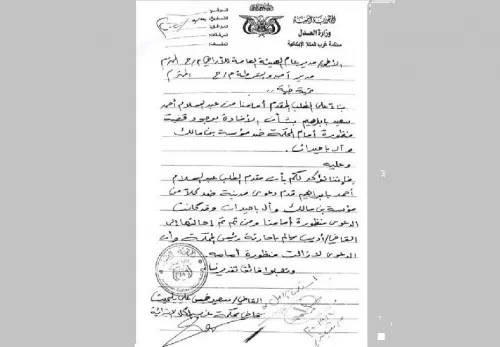 الجمهورية اليمنية
وزارة العدل
محكمة غرب المكلا الابتدائية
الأخ/ مدير عام الهيئة العامة للأراضي م/ح المحترم
مدير أمن م/ح المحترم
تحية طيبة ..
بناءً على الطلب المقدم أمامنا من عبدالسلام أحمد
سعيد بابراهيم بشأن الإفادة بوجود قضية
منظورة أمام المحكمة ضد مؤسسة بن مالك
وآل باحيدان.
وعليه
فإننا نؤكد لكم بأن مقدم الطلب عبدالسلام
أحمد بابراهيم قدم دعوى مدنية ضد كلاً من
مؤسسة بن مالك وآل باحيدان وقد كانت
الدعوى منظورة أمامنا ومن ثم تم إحالتها إلى
القاضي/ سالم باحارثة رئيس المحكمة وأن
الدعوى لازالت منظورة أمامه
وتقبلوا خالص تقديرنا
القاضي/ سعيد
قاضي محكمة غرب المكلا الابتدائية